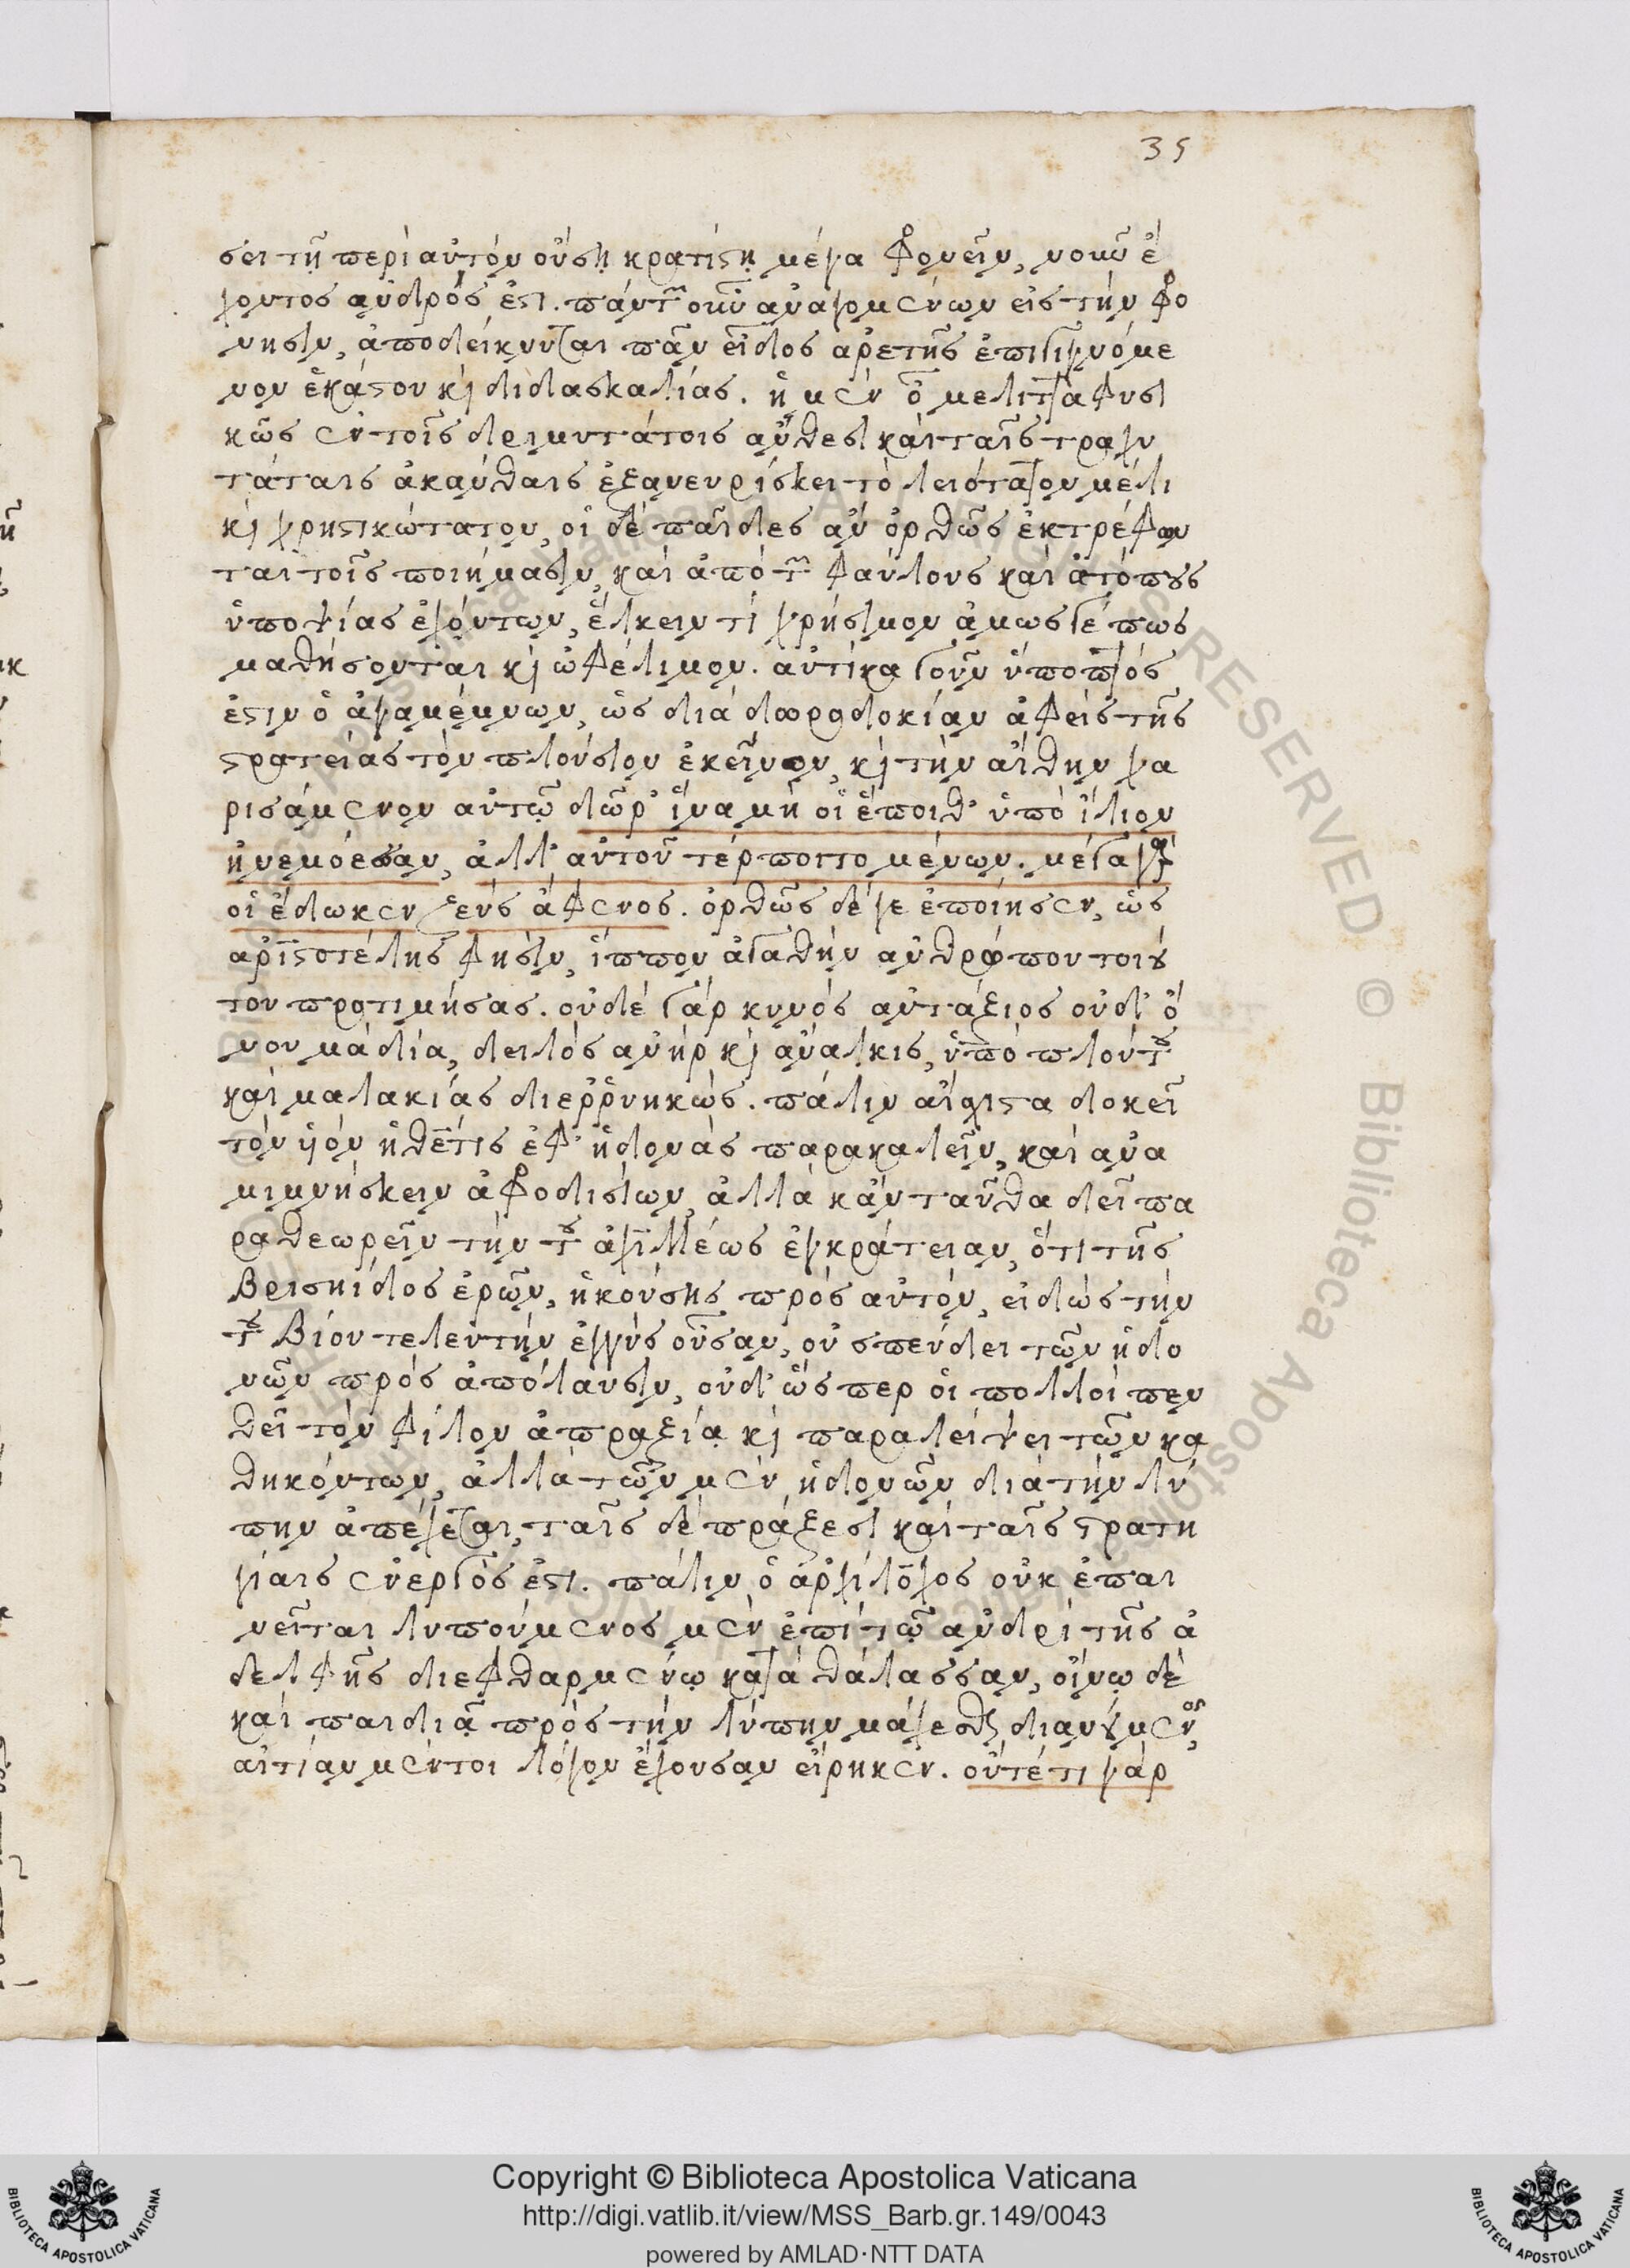 35
σει τῇ περὶ αὐτὸν οὔσῃ κρατίστῃ μέγα φρονεῖν, νοῦν ἔ
χοντος ἀνδρός ἐστι. πάντων οὖν ἀναγομένων εἰς τὴν φρό
νησιν, ἀποδείκνυται πᾶν εἶδος ἀρετῆς ἐπιγιγνόμε
νον ἑκάστου καὶ διδασκαλίας. ἡ μὲν οὖν μέλιττα φυσι
κῶς ἐν τοῖς δριμυτάτοις ἄνθεσι καὶ ταῖς τραχυ
τάταις ἀκάνθαις ἐξανευρίσκει τὸ λειότατον μέλι
καὶ χρηστικώτατον, οἱ δὲ παῖδες ἂν ὀρθῶς ἐκτρέφων
ται τοῖς ποιήμασιν, καὶ ἀπὸ τῶν φαύλους καὶ ἀτόπους
ὑποψίας ἐχόντων, ἕλκειν τὶ χρήσιμον ἁμωσγέπως
μαθήσονται καὶ ὠφέλιμον. αὐτίκα γοῦν ὕποπτός
ἐστιν ὁ ἀγαμέμνων, ὡς διὰ δωροδοκίαν ἀφεὶς τῆς
στρατείας τὸν πλούσιον ἐκεῖνον, καὶ τὴν αἴθην χα
ρισάμενον αὐτῷ δῶρ' ἵνα μή οἱ ἕποιθ' ὑπὸ ἴλιον
ἠνεμόεσσαν, ἀλλ' αὐτοῦ τέρποιτο μένων. μέγα γὰρ
οἱ ἔδωκεν ζεὺς ἄφενος. ὀρθῶς δέ γε ἐποίησεν, ὡς
ἀριστοτέλης φησὶν, ἵππον ἀγαθὴν ἀνθρώπου τοιού
του προτιμήσας. οὐδὲ γὰρ κυνὸς αὐτάξιος οὐδ' ὄ
νου μὰ δία, δειλὸς ἀνὴρ καὶ ἄναλκις, ὑπὸ πλούτου
καὶ μαλακίας διερρυηκώς. πάλιν αἴσχιστα δοκεῖ
τὸν υἱὸν ἡ θέτις ἐφ' ἡδονὰς παρακαλεῖν, καὶ ἀνα
μιμνήσκειν ἀφροδισίων, ἀλλὰ κἀνταῦθα δεῖ πα
ραθεωρεῖν τὴν τοῦ ἀχιλλέως ἐγκράτειαν, ὅτι τῆς
βρισηίδος ἐρῶν, ἡκούσης πρὸς αὐτὸν, εἰδὼς τὴν
τοῦ βίου τελευτὴν ἐγγὺς οὖσαν, οὐ σπεύδει τῶν ἡδο
νῶν πρὸς ἀπόλαυσιν, οὐδ' ὥσπερ οἱ πολλοὶ πεν
θεῖ τὸν φίλον ἀπραξίᾳ καὶ παραλείψει τῶν κα
θηκόντων, ἀλλὰ τῶν μὲν ἡδονῶν διὰ τὴν λύ
πην ἀπέχεται, ταῖς δὲ πράξεσι καὶ ταῖς στρατη
γίαις ἐνεργός ἐστι. πάλιν ὁ ἀρχίλοχος οὐκ ἐπαι
νεῖται λυπούμενος μὲν ἐπὶ τῷ ἀνδρὶ τῆς ἀ
δελφῆς διεφθαρμένῳ κατὰ θάλασσαν, οἴνῳ δὲ
καὶ παιδιᾷ πρὸς τὴν λύπην μάχεσθαι διανούμενος,
αἰτίαν μέντοι λόγον ἔχουσαν εἴρηκεν. οὔτέ τι γὰρ
Copyright © Biblioteca Apostolica Vaticana
http://digi.vatlib.it/view/MSS_Barb.gr.149/0043
powered by AMLAD·NTT DATA